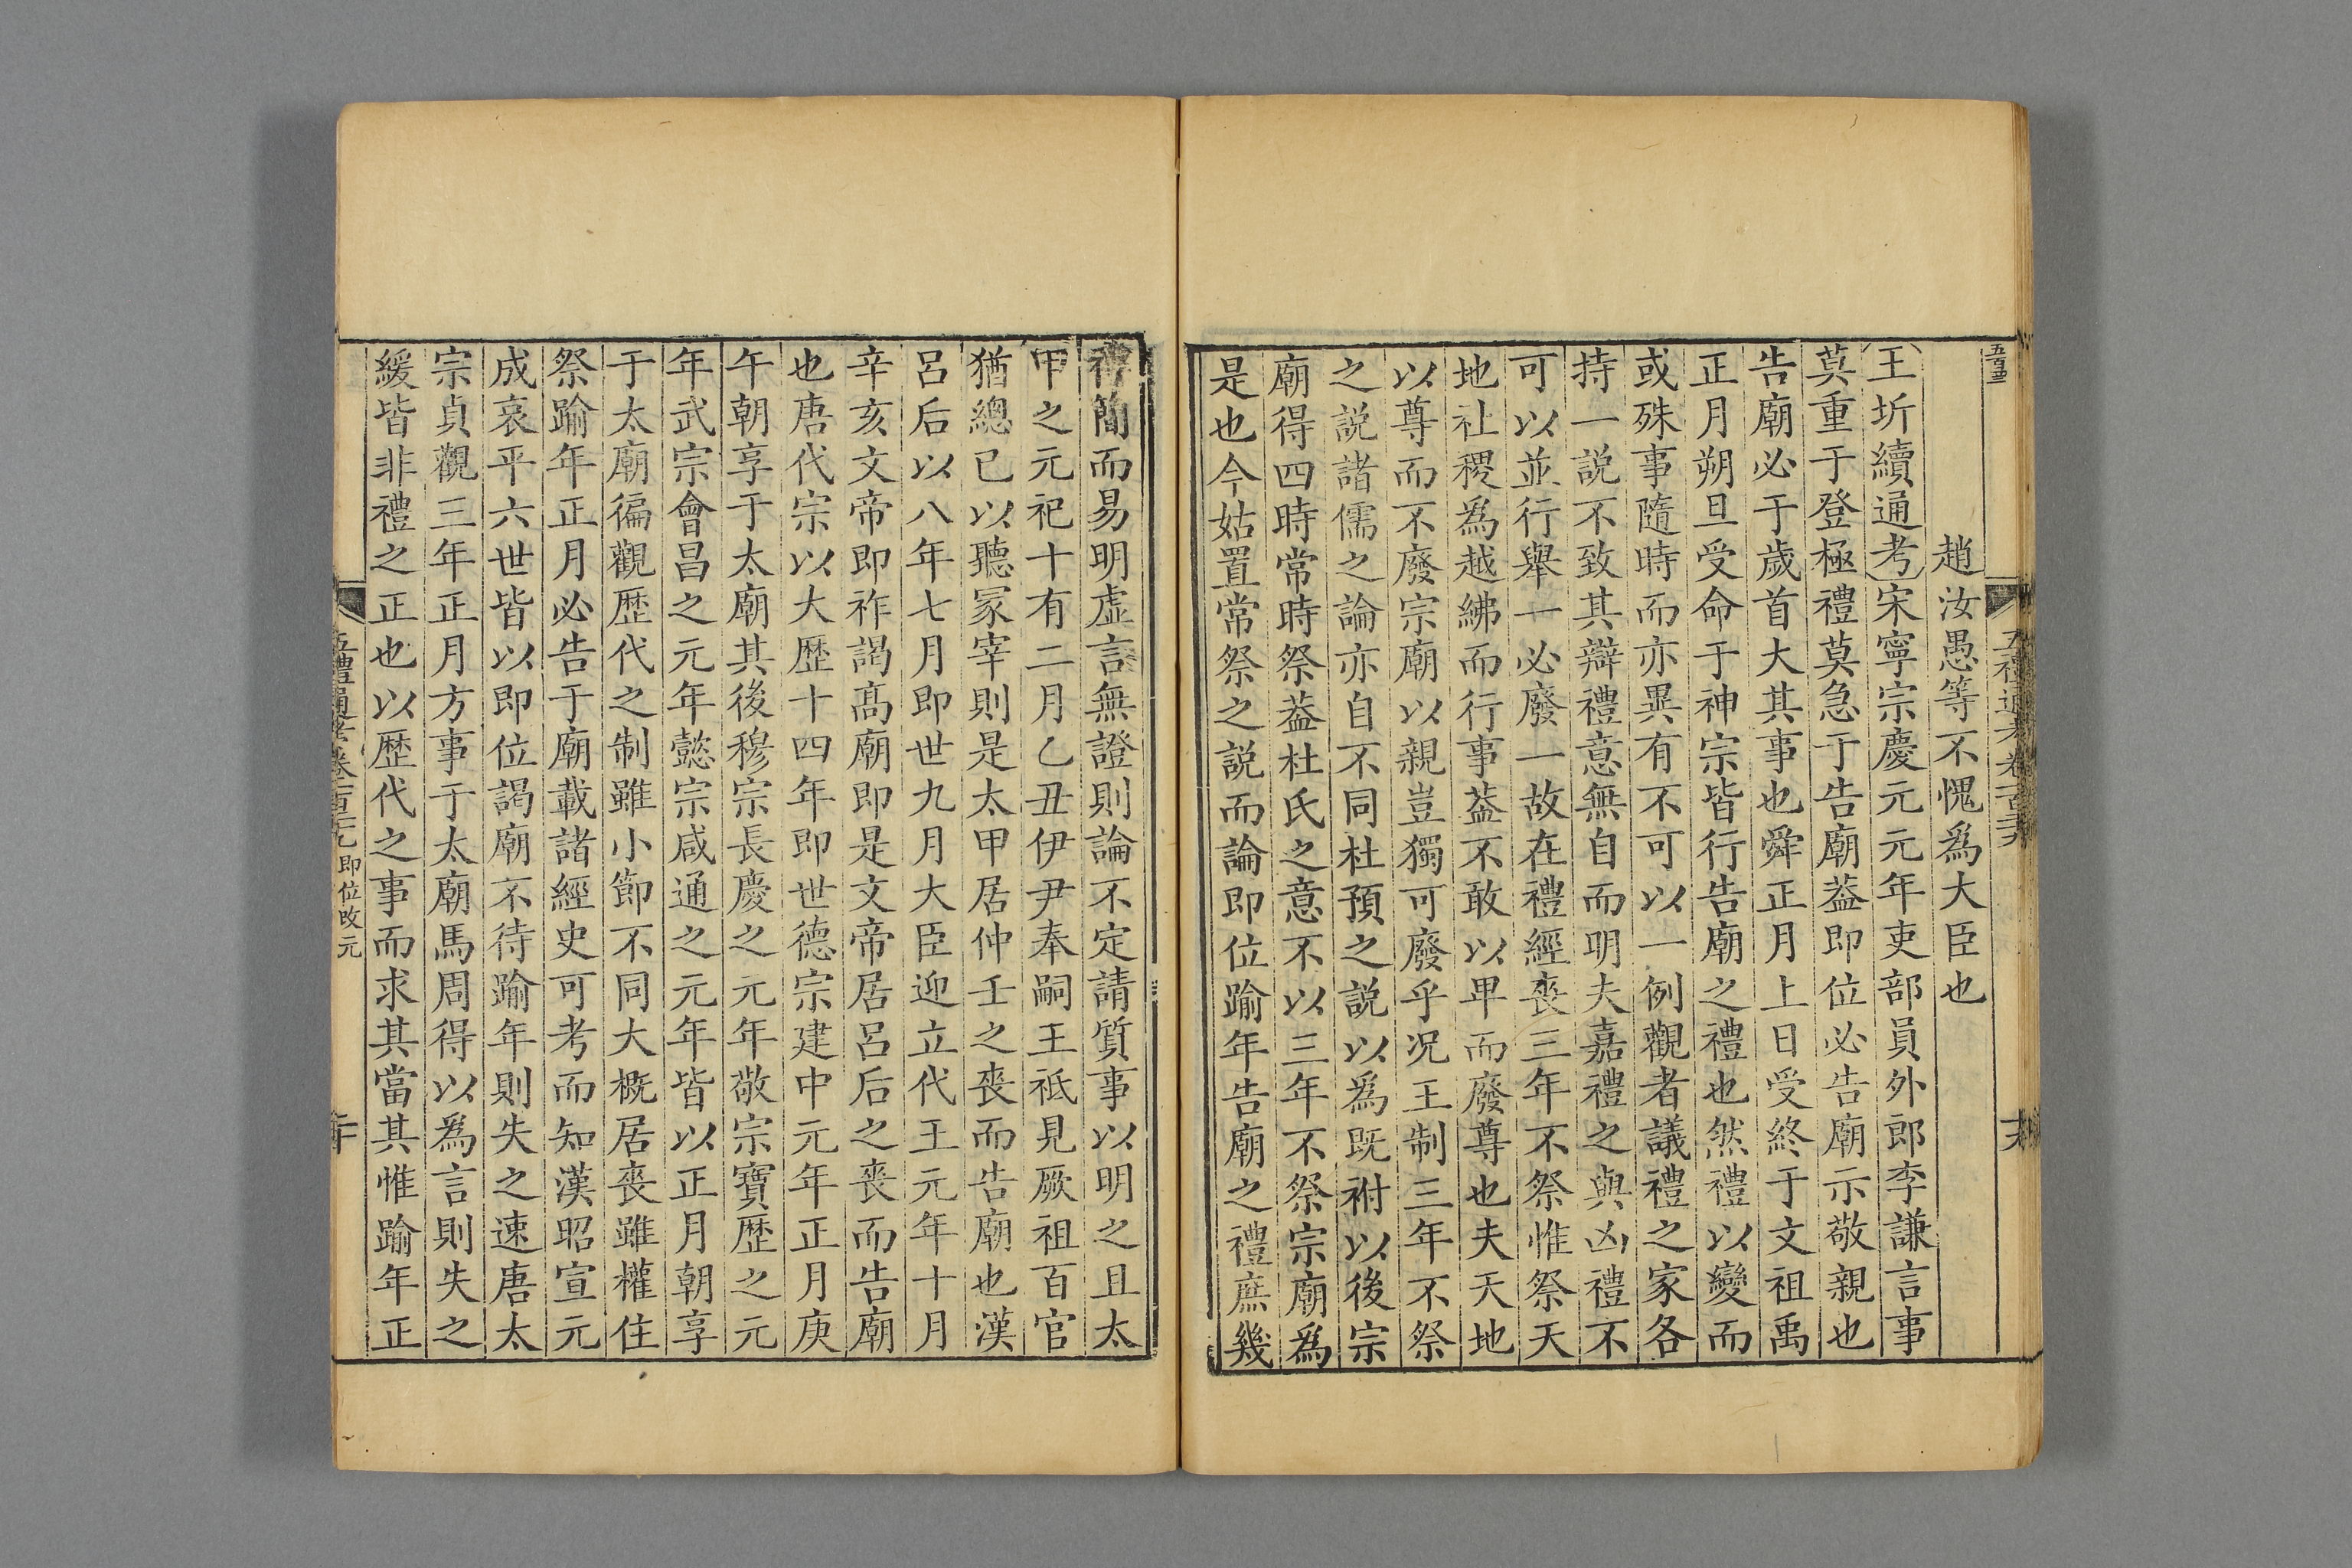 趙汝愚等不愧爲大臣也
王圻續通考宋寧宗慶元元年吏部員外郎李謙言事
莫重于登極禮莫急于告廟葢即位必告廟示敬親也
告廟必于歲首大其事也舜正月上日受終于文祖禹
正月朔旦受命于神宗皆行告廟之禮也然禮以變而
或殊事隨時而亦異有不可以一例觀者議禮之家各
持一説不致其辯禮意無自而明夫嘉禮之與凶禮不
可以並行舉一必廢一故在禮經喪三年不祭惟祭天
地社稷爲越紼而行事葢不敢以卑而廢尊也夫天地
以尊而不廢宗廟以親豈獨可廢乎况王制三年不祭
之説諸儒之論亦自不同杜預之説以爲既祔以後宗
廟得四時常時祭葢杜氏之意不以三年不祭宗廟爲
是也今姑置常祭之説而論即位踰年告廟之禮庶幾
禮簡而易明虚言無證則論不定請質事以明之且太
甲之元祀十有二月乙丑伊尹奉嗣王祗見厥祖百官
猶總已以聽冢宰則是太甲居仲壬之喪而告廟也漢
呂后以八年七月即世九月大臣迎立代王元年十月
辛亥文帝即祚謁髙廟即是文帝居呂后之喪而告廟
也唐代宗以大歷十四年即世德宗建中元年正月庚
午朝享于太廟其後穆宗長慶之元年敬宗寶歷之元
年武宗會昌之元年懿宗咸通之元年皆以正月朝享
于太廟徧觀歷代之制雖小節不同大概居喪雖權住
祭踰年正月必告于廟載諸經史可考而知漢昭宣元
成哀平六世皆以即位謁廟不待踰年則失之速唐太
宗貞觀三年正月方事于太廟馬周得以爲言則失之
緩皆非禮之正也以歷代之事而求其當其惟踰年正
五禮通考卷一百二十九 即位改元
二十